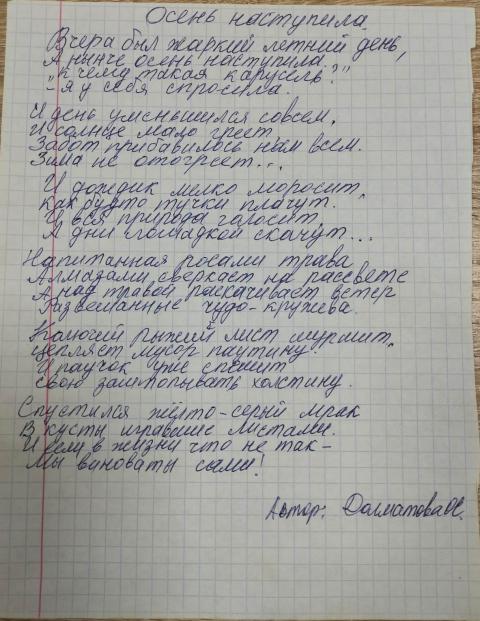 Осень наступила.
Вчера был жаркий летний день,
А нынче осень наступила.
"К чему такая карусель?"
- я у себя спросила.
И день уменьшился совсем,
И солнце мало греет.
Забот прибавилось нам всем.
Зима не отогреет...
И дождик мелко моросит,
Как будто тучки плачут.
И вся природа голосит,
А дни лошадкой скачут...
Напитанная росами трава
Алмазами сверкает на рассвете
А над травой раскачивает ветер
Развешанные чудо-кружева.
Колючий рыжий лист шуршит,
Цепляет мусор паутину.
И паучок уже спешит
Свою заштопывать холстину.
Спустился жёлто-серый мрак
В кусты игравшие листами.
И если в жизни что не так-
Мы виноваты сами!
Автор: Долматова